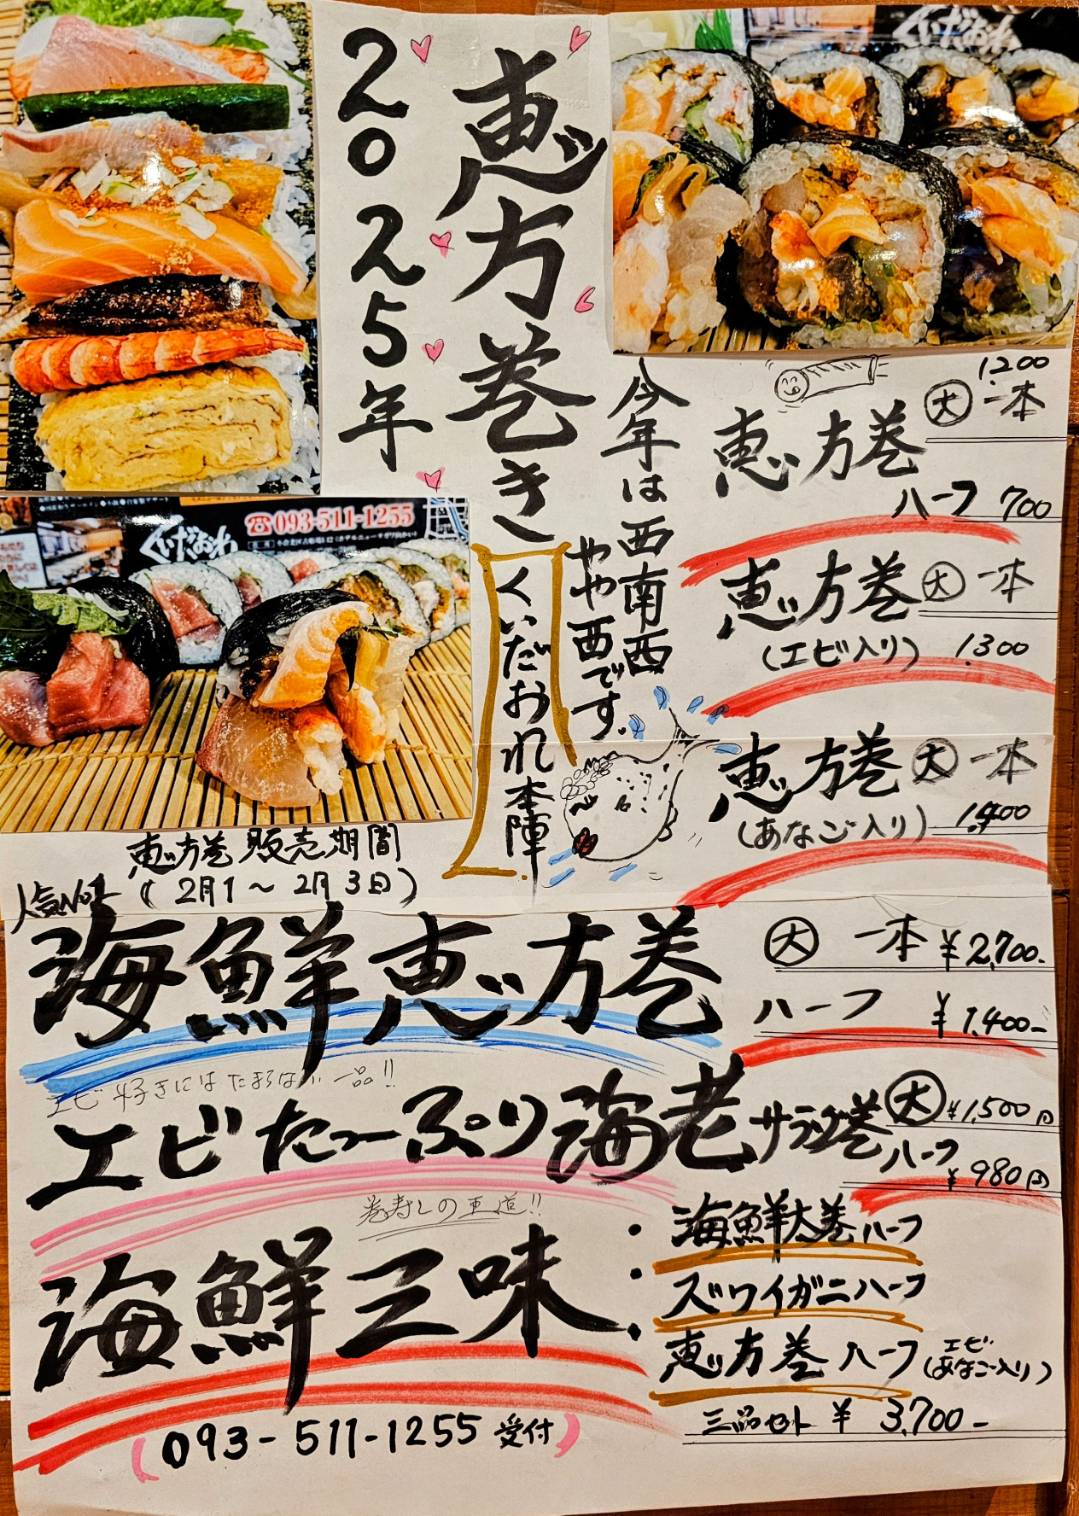 2025年
恵方巻き
くいだおれ本陣
今年は西南西
やや西です。
くいだおれ
恵方巻 大 一本 1.200
ハーフ 700
恵方巻 大 一本
(エビ入り) 1.300
恵方巻 大 一本
(あなご入り) 1.400
☎093-511-1255
くいだおれ
恵方巻 販売期間
(2月1～2月3日)
人気No1
海鮮恵方巻 大 一本 ¥2,700-
ハーフ ¥1,400-
エビ好きにはたまらない一品!!
エビたっーぷり海老サラダ巻 大 ¥1,500円
ハーフ ¥980円
巻寿しの王道!!
海鮮三味
:海鮮太巻ハーフ
ズワイガニハーフ
恵方巻 ハーフ (エビ あなご入り)
三品セット ¥3,700-
(093-511-1255 受付)